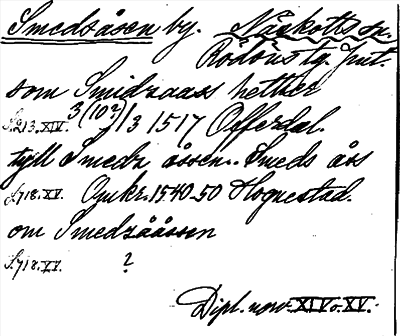 Smedsåsen by. Näskotts sn.
Rödöns tg. Jmt.
som Smidzaass hetther
S.213.XIV. 3(10?)/3 1517 Offerdal.
tyll Smedz åssen.. Smeds åss
S.718.XV. Omkr. 1540-50 Hognestad.
om Smedzååssen
S.718.XV. ?
Dipl. norv. XIV o. XV.